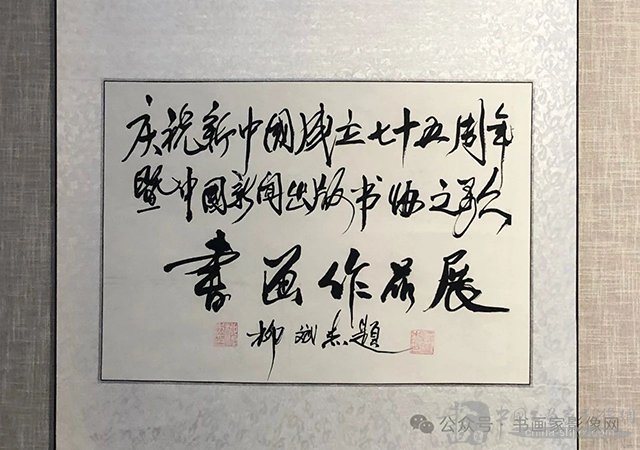 庆祝新中国成立七十五周年
暨中国新闻出版书协之歌
書画作品展
柳斌杰題
公众号·书画家影像网